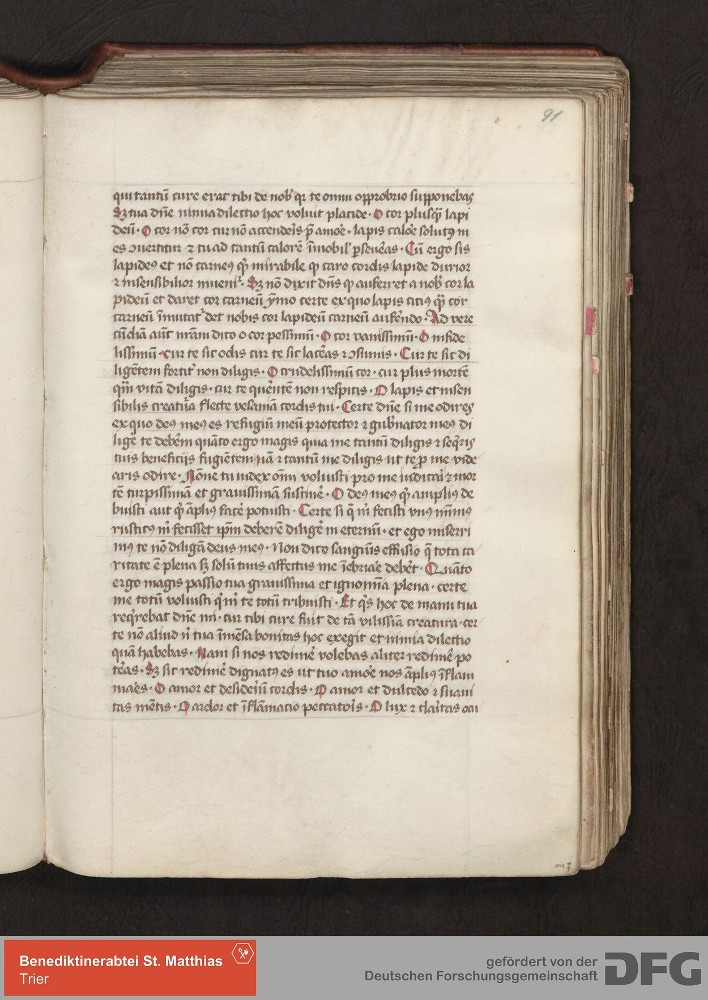 91
qui tantū cure erat tibi de nob qr te omni opprobrio supponebas
Sz tua dn̄e nimia dilectio hoc voluit placide · O cor plusqȝ lapi
deū · O cor nō cor cur nō accenderis p̄ amore · lapis calore solutus in
es ꝯuertitur ⁊ tu ad tantū calorē īmobil' ꝑseueras · Cū ergo sis
lapideꝰ et nō carneꝰ qȝ mirabile qȝ caro cordis lapide durior
⁊ insensibilior inueni · Sz nō dixit dn̄s qȝ auferret a nob cor la
pideū et daret cor carneū ymo certe ex quo lapis citiꝰ qȝ cor
carneū īmutat det nobis cor lapideū carneū auferendo · Ad vere
cūdiā aūt mīam dico o cor pessimū · O cor vanissimū · O infide
lissimū · cur te sit odis cur te sit laceras ⁊ ꝯsumis · Cur te sit di
ligētem fortit' non diligis · O crudelissimū cor · cur plus mortē
qȝ vitā diligis · cur te querētē non respicis · O lapis et insen
sibilis creatura flecte vesaniā cordis tui · Certe dn̄e si me odires
ex quo deꝰ meꝰ es refugiū meū protector ⁊ gubnator meꝰ di
ligē te deberem quāto ergo magis quia me tantū diligis ⁊ seqris
tuis beneficijs fugientem ⁊ tantū me diligis ut te ꝑ me vide
aris odire · Nōne tu iudex om̄i voluisti pro me iudicari ⁊ mor
tē turpissimā et grauissimā sustinē · O deꝰ meꝰ qȝ ampliꝰ de
buisti aut qȝ āpliꝰ facē potuisti · Certe si q̄ m̄ fecisti vnꝰ minimꝰ
rusticꝰ m̄ fecisset ipm̄ deberē diligē in eternū · et ego miserri
mꝰ te nō diligā deus meꝰ · Non dico sanguīs effusio q̄ tota ca
ritate ē plena sȝ solū tuus affectus me īebriare debet · Quāto
ergo magis passio tua grauissima et ignomīa plena · certe
me totū voluisti q̄ m̄ te totū tribuisti · Et qis hoc de manu tua
reqrebat dn̄e mi · cur tibi cure fuit de tā vilissīa creatura · cer
te nō aliud nī tua īmēsa bonitas hoc exegit et nimia dilectio
quā habebas · Nam si nos redimē volebas aliter redimē po
teras · Sz sic redimē dignatꝰ es ut tuo amore nos āpliꝰ īflam
mares · O amor et desideriū cordis · O amor et dulcedo ⁊ suaui
tas mētis · O ardor et īflāmatio peccatoris · O lux ⁊ claritas ocu
Benediktinerabtei St. Matthias
Trier
gefördert von der
Deutschen Forschungsgemeinschaft
DFG